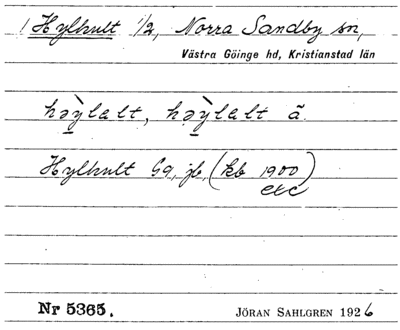 1 Hylhult 1/2, Norra Sandby sn,
Västra Göinge hd, Kristianstad län
hə̀ylalt, hə̀ylalt ā.
Hylhult Gg, jb, (kb 1900)
etc
Nr 5365. JÖRAN SAHLGREN 1926